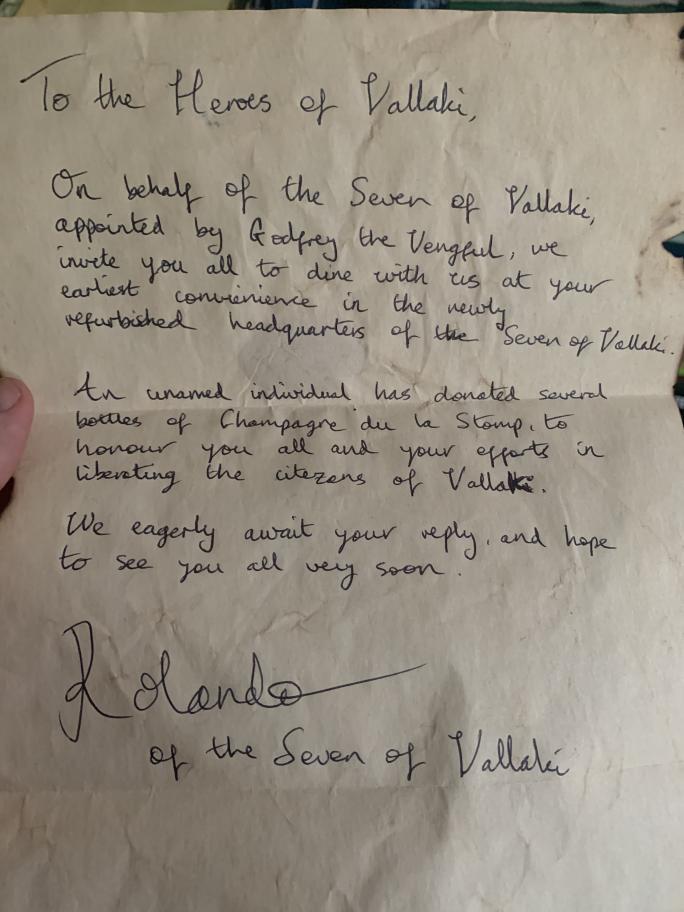 To the Heroes of Vallaki,
On behalf of the Seven of Vallaki,
appointed by Godfrey the Vengful, we
invite you all to dine with us at your
earliest convienience in the newly
refurbished headquarters of the Seven of Vallaki.
An unamed individual has donated several
bottles of Champagne du la Stomp, to
honour you all and your efforts in
liberating the citezens of Vallaki.
We eagerly await your reply, and hope
to see you all very soon.
Rolando
of the Seven of Vallaki